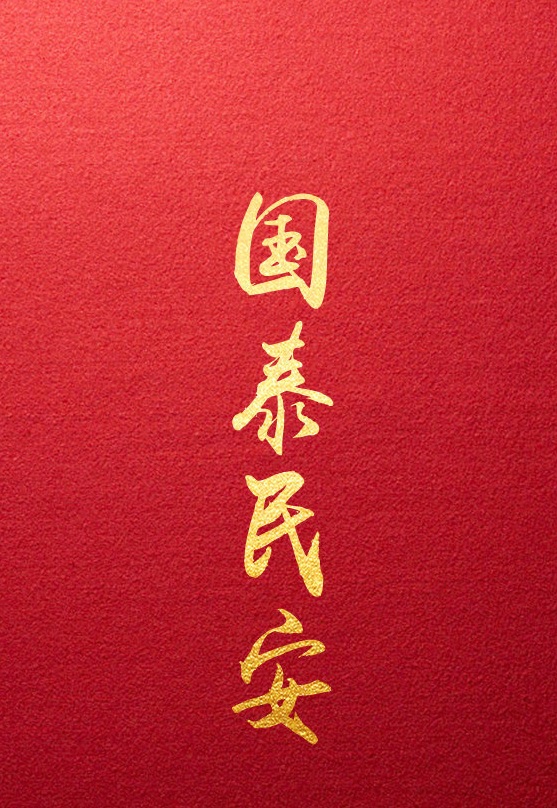 国泰民安